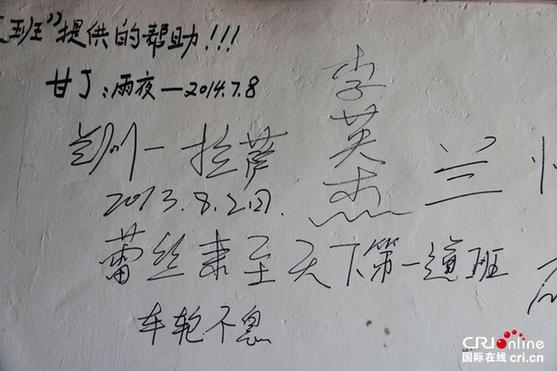 班”提供的帮助!!!
甘丁:雨夜—2014.7.8
李英杰
兰
—拉萨
2013.8.2日.
蕾丝来至天下第一道班
车轮不息
CRIonline
国际在线 cri.cn